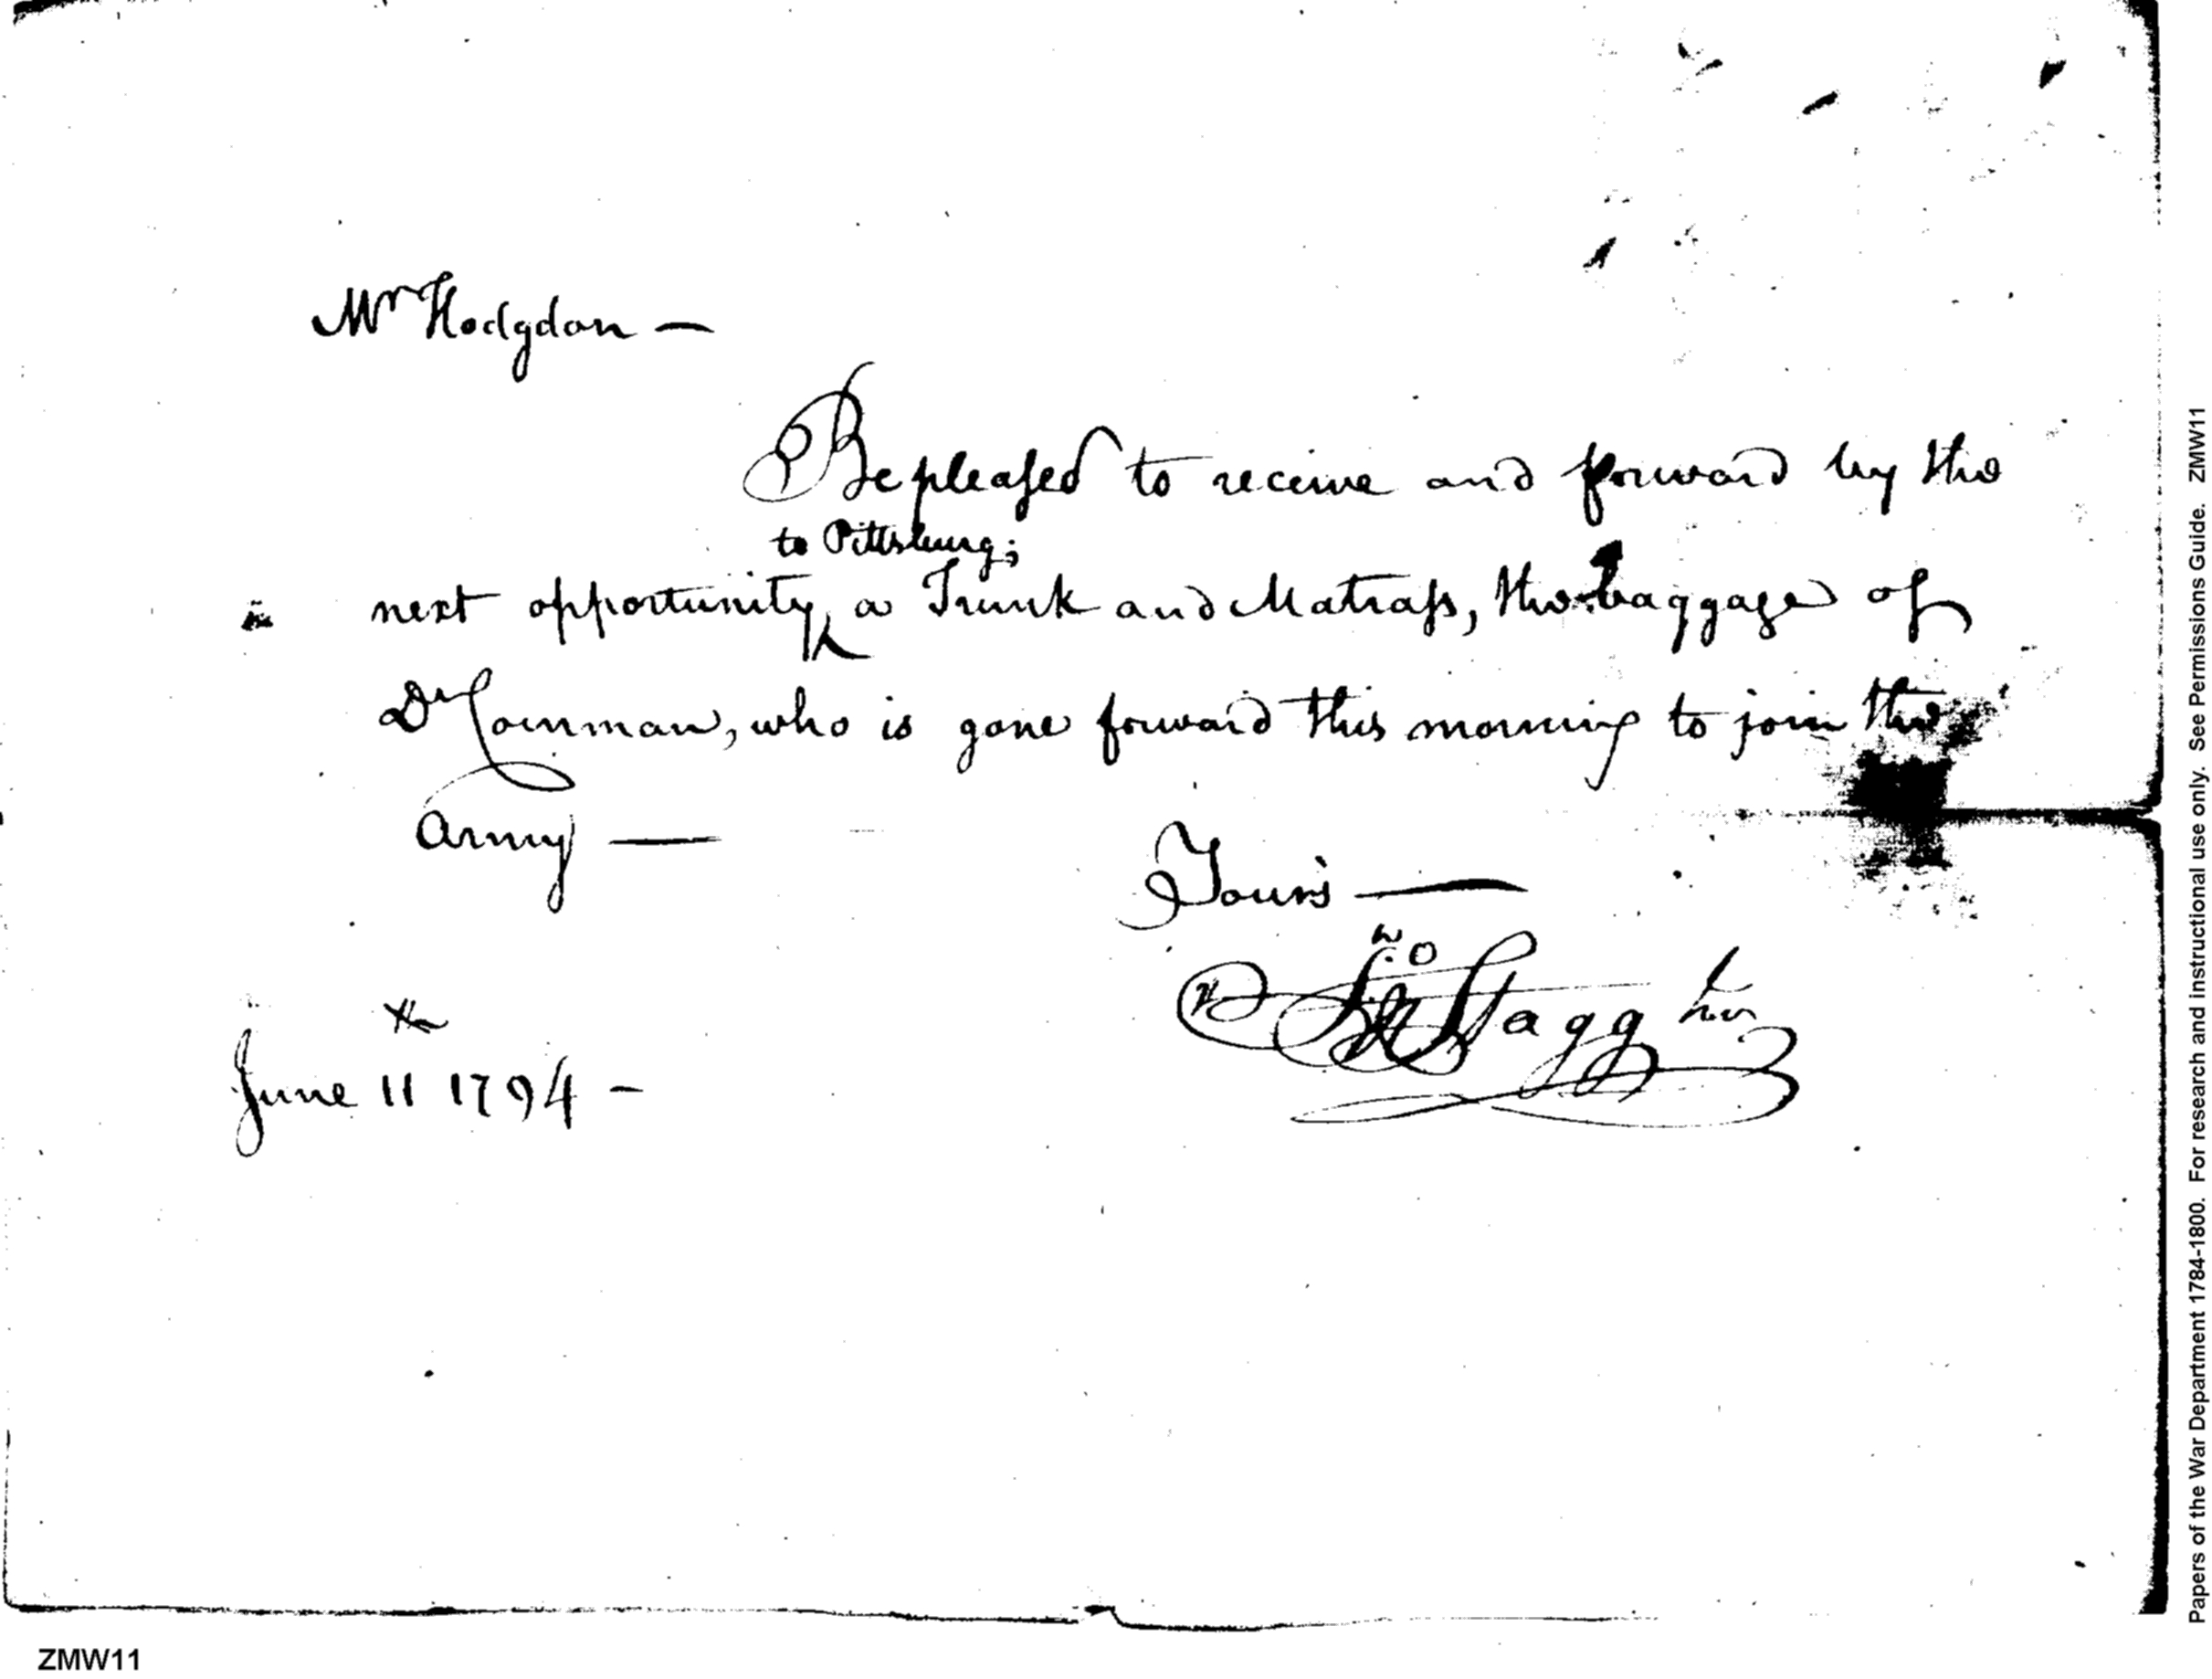 Mr Hodgdon —
Be pleased to receive and forward by the
to Pittsburg;
next opportunity a Trunk and Matrass, the baggage of
Dr , who is gone forward this morning to join the
Army —
Yours —
Jno Stagg Jur
June 11th 1794 —
ZMW11
Papers of the War Department 1784-1800. For research and instructional use only. See Permissions Guide. ZMW11